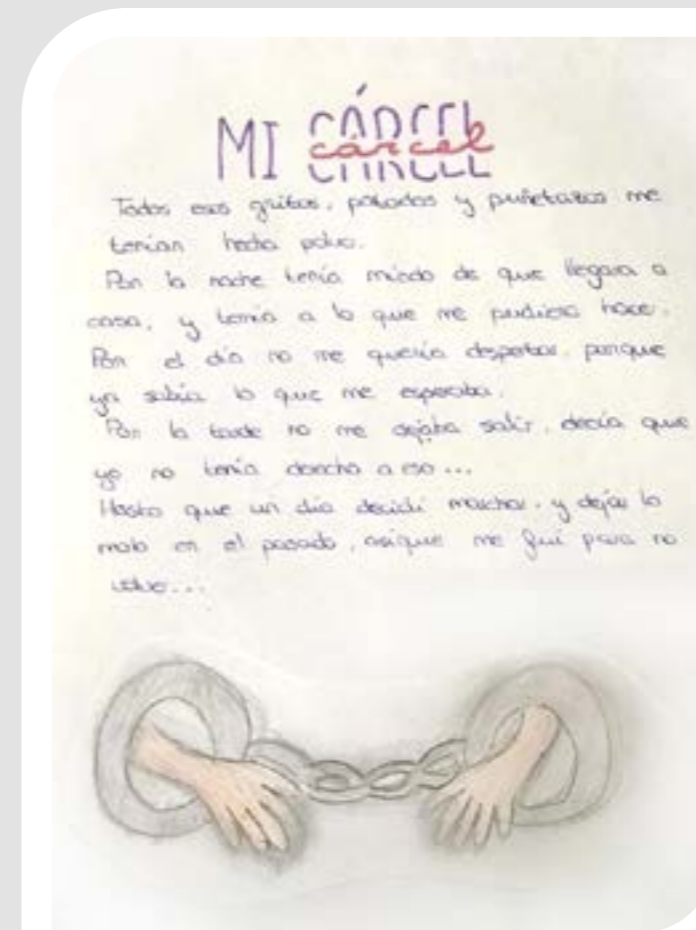 MI CÁRCEL
cárcel
Todos esos gritos, patadas y puñetazos me
tenían hecha polvo.
Por la noche tenía miedo de que llegara a
casa, y temía a lo que me pudiera hacer.
Por el día no me quería despertar, porque
ya sabía lo que me esperaba.
Por la tarde no me dejaba salir, decía que
yo no tenía derecho a eso...
Hasta que un día decidí marchar, y dejar lo
malo en el pasado, asique me fui para no
volver...